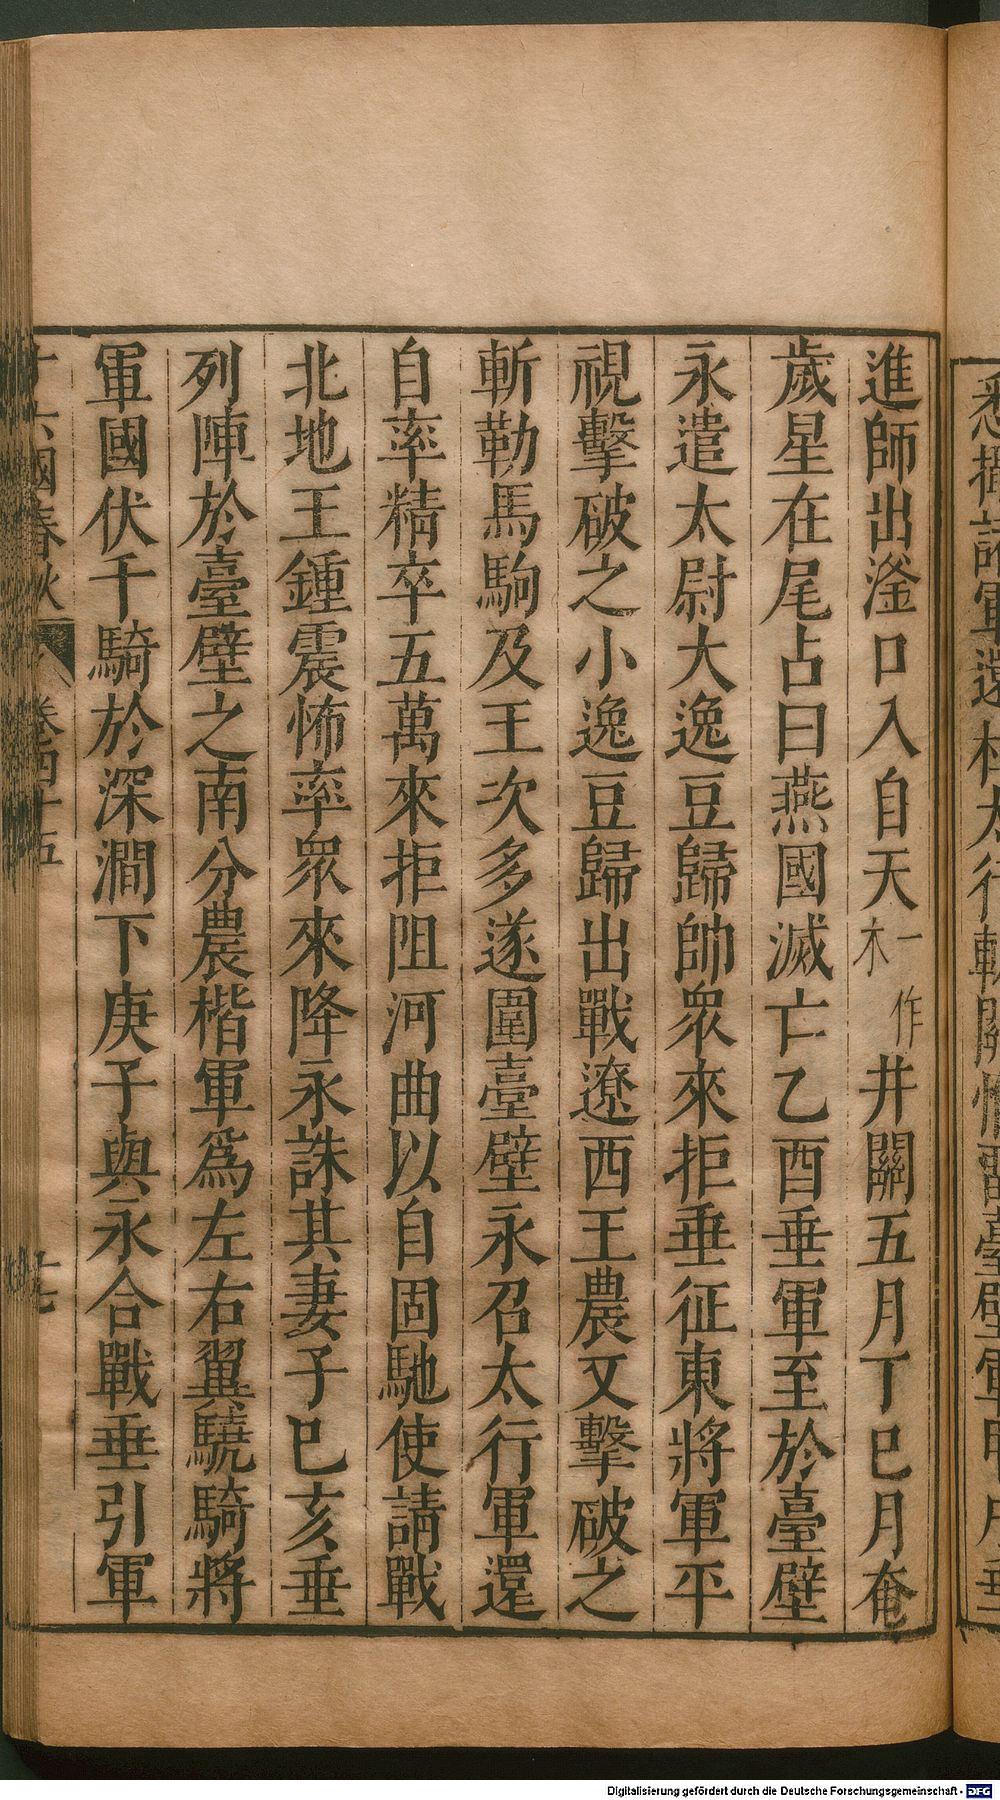 進師出滏口入自天一作木井關五月丁巳月奄
歲星在尾占曰燕國滅亡乙酉垂軍至於臺壁
永遣太尉大逸豆歸帥衆來拒垂征東將軍平
視擊破之小逸豆歸出戰遼西王農又擊破之
斬勒馬駒及王次多遂圍臺壁永召太行軍還
自率精卒五萬來拒阻河曲以自固馳使請戰
北地王鍾震怖率衆來降永誅其妻子巳亥垂
列陣於臺壁之南分農楷軍爲左右翼驍騎將
軍國伏千騎於深澗下庚子與永合戰垂引軍
十六國春秋 卷四十五 十七
Digitalisierung gefördert durch die Deutsche Forschungsgemeinschaft - DFG